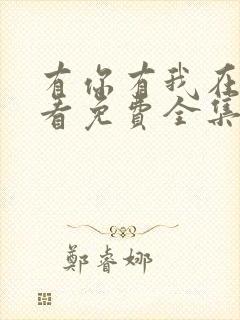 有你有我在
看免费全集
鄭睿娜